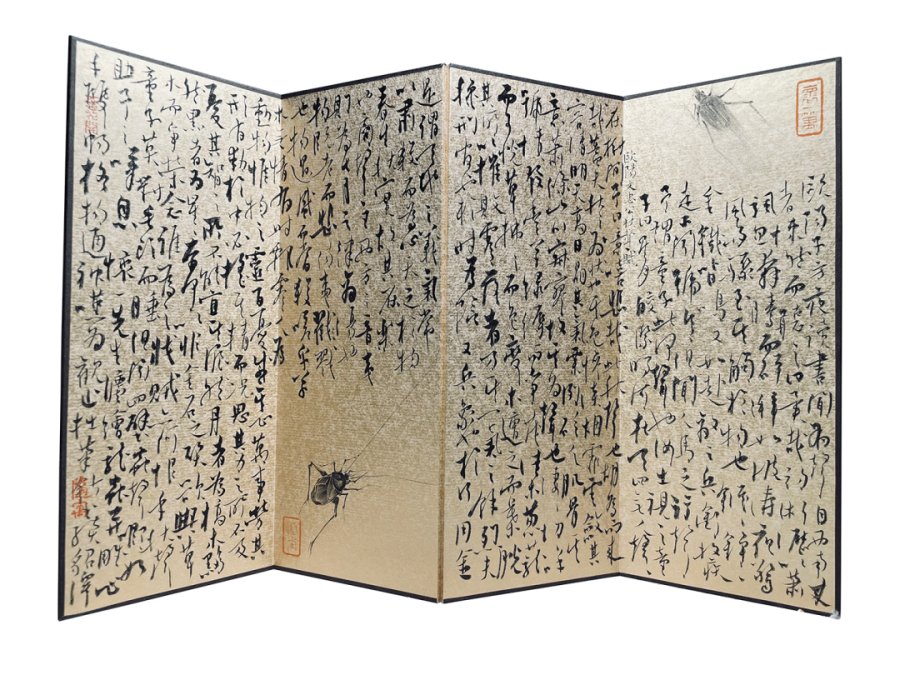 歐陽子方夜讀書聞有聲自西南來
者悚然而聽之曰異哉初淅瀝以蕭
颯忽奔騰而砰湃如波濤夜驚
風雨驟至其觸於物也鏦鏦錚錚
金鐵皆鳴又如赴敵之兵銜枚疾
走不聞號令但聞人馬之行聲
予謂童子此何聲也汝出視之童
子曰星月皎潔明河在天四無人聲聲
歐陽文忠公秋聲賦
在樹間予曰噫嘻悲哉此秋聲也胡為而來
哉蓋夫秋之為狀也其色慘淡煙霏雲斂其
容清明天高日晶其氣慄冽砭人肌骨其
意蕭條山川寂寥故其為聲也淒淒切切
呼號奮發豐草綠縟而爭茂佳木蔥蘢
而可悅草拂之而色變木遭之而葉脫
其所以摧敗零落者乃其一氣之餘烈夫
秋刑官也於時為陰又兵象也於行用金
是謂天地之義氣常
以肅殺而為心天之於物
春生秋實故其在樂也
商聲主西方之音夷
則為七月之律商傷也
物既老而悲傷夷戮
也物過盛而當殺嗟乎草
木無情有時飄零人為
動物惟物之靈百憂感其心萬事勞其
形有動於中必搖其精而況思其力之所不及
憂其智之所不能宜其渥然丹者為槁木黟
然黑者為星星奈何以非金石之質欲與草
木而爭榮念誰為之戕賊亦何恨乎秋聲
童子莫對垂頭而睡但聞四壁蟲聲唧唧如
助予之歎息